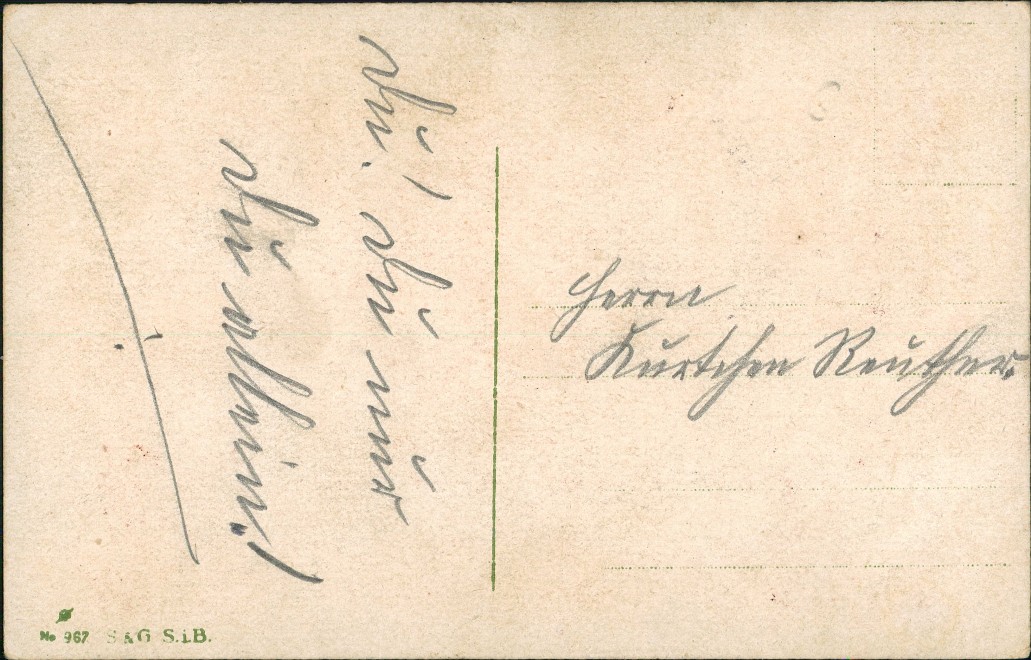 Du! Du nur
Du allein!
Herrn
Kurtchen Reuther.
No 967 S & G. S.i.B.